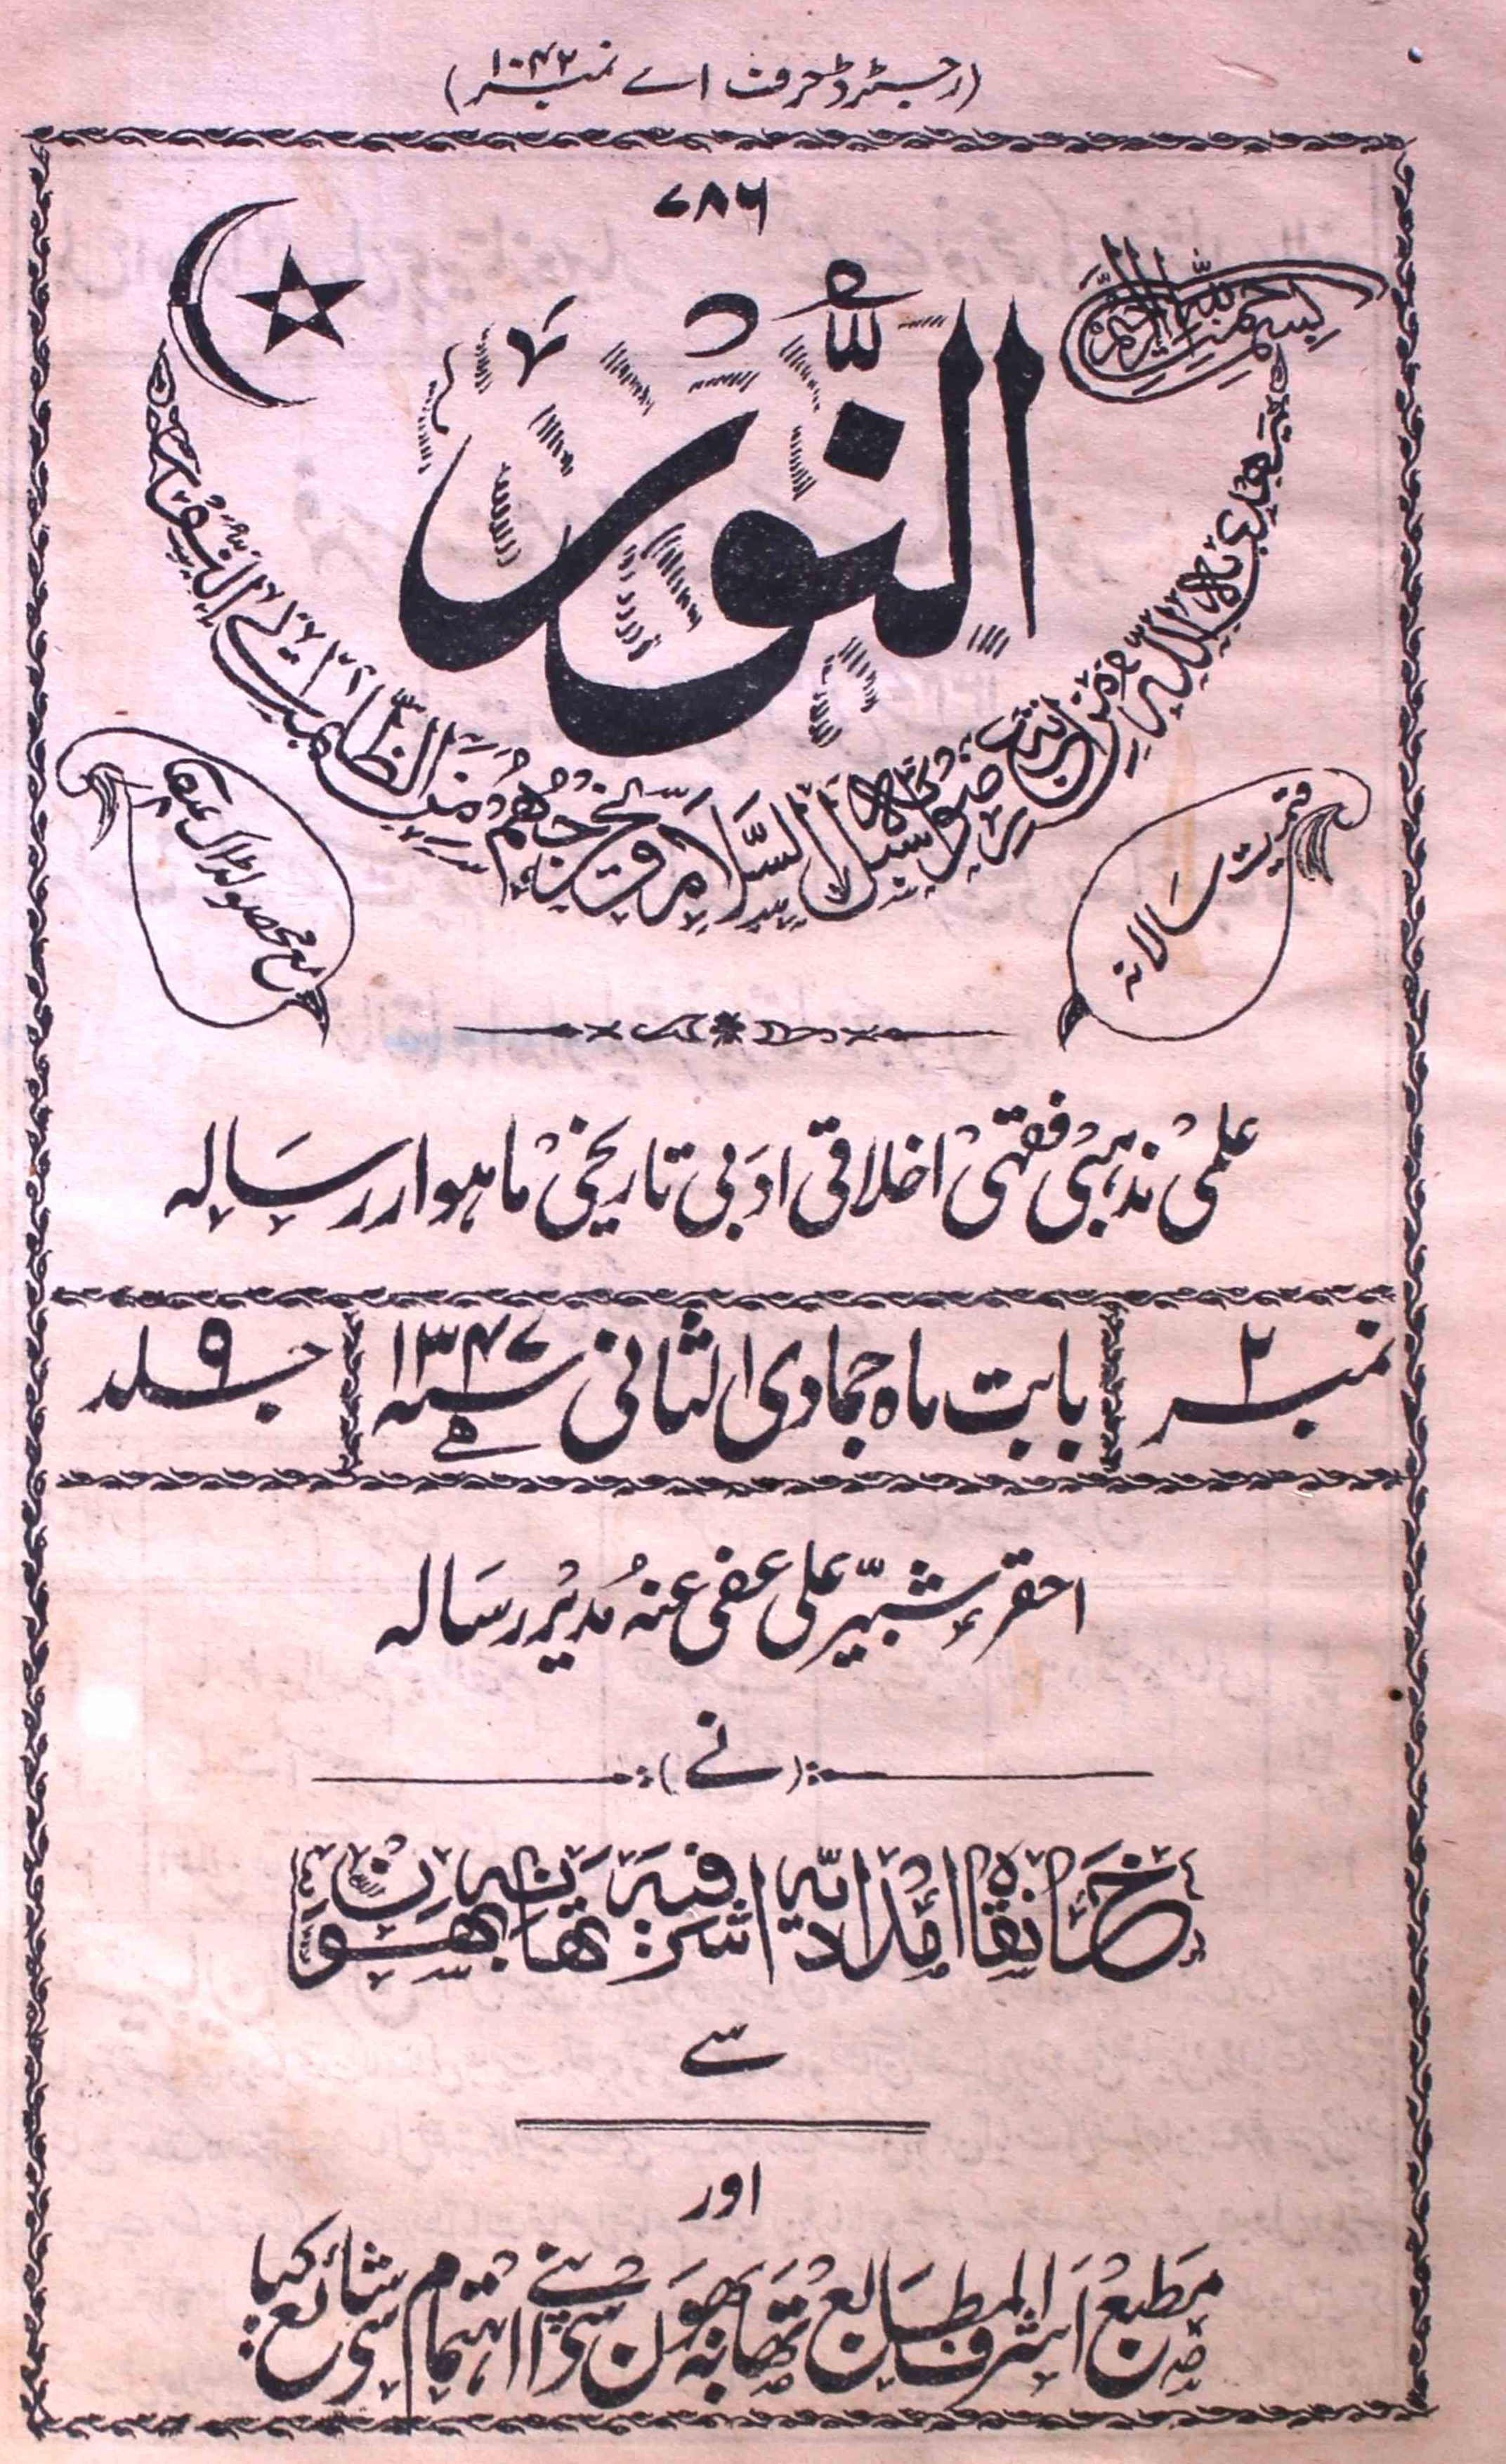 (رجسٹرڈ حرف اے نمبر ۱۰۴۲)
۷۸۶
بسم اللہ الرحمن الرحیم
النُّوْر
یھدی بہ اللہ من اتبع رضوانہ سبل السلام و یخرجھم من الظلمات الی النور
قیمت سالانہ
مع محصولڈاک
علمی مذہبی فقہی اخلاقی ادبی تاریخی ماہوار رسالہ
نمبر ۲
بابت ماہ جمادی الثانی ۱۳۴۷ھ
جلد ۹
احقر شبیر علی عفی عنہ مدیر رسالہ
(نے)
خانقاہ امدادیہ اشرفیہ تھانہ بھون
سے
اور
مطبع اشرف المطابع تھانہ بھون سے اپنے اہتمام سے شائع کیا